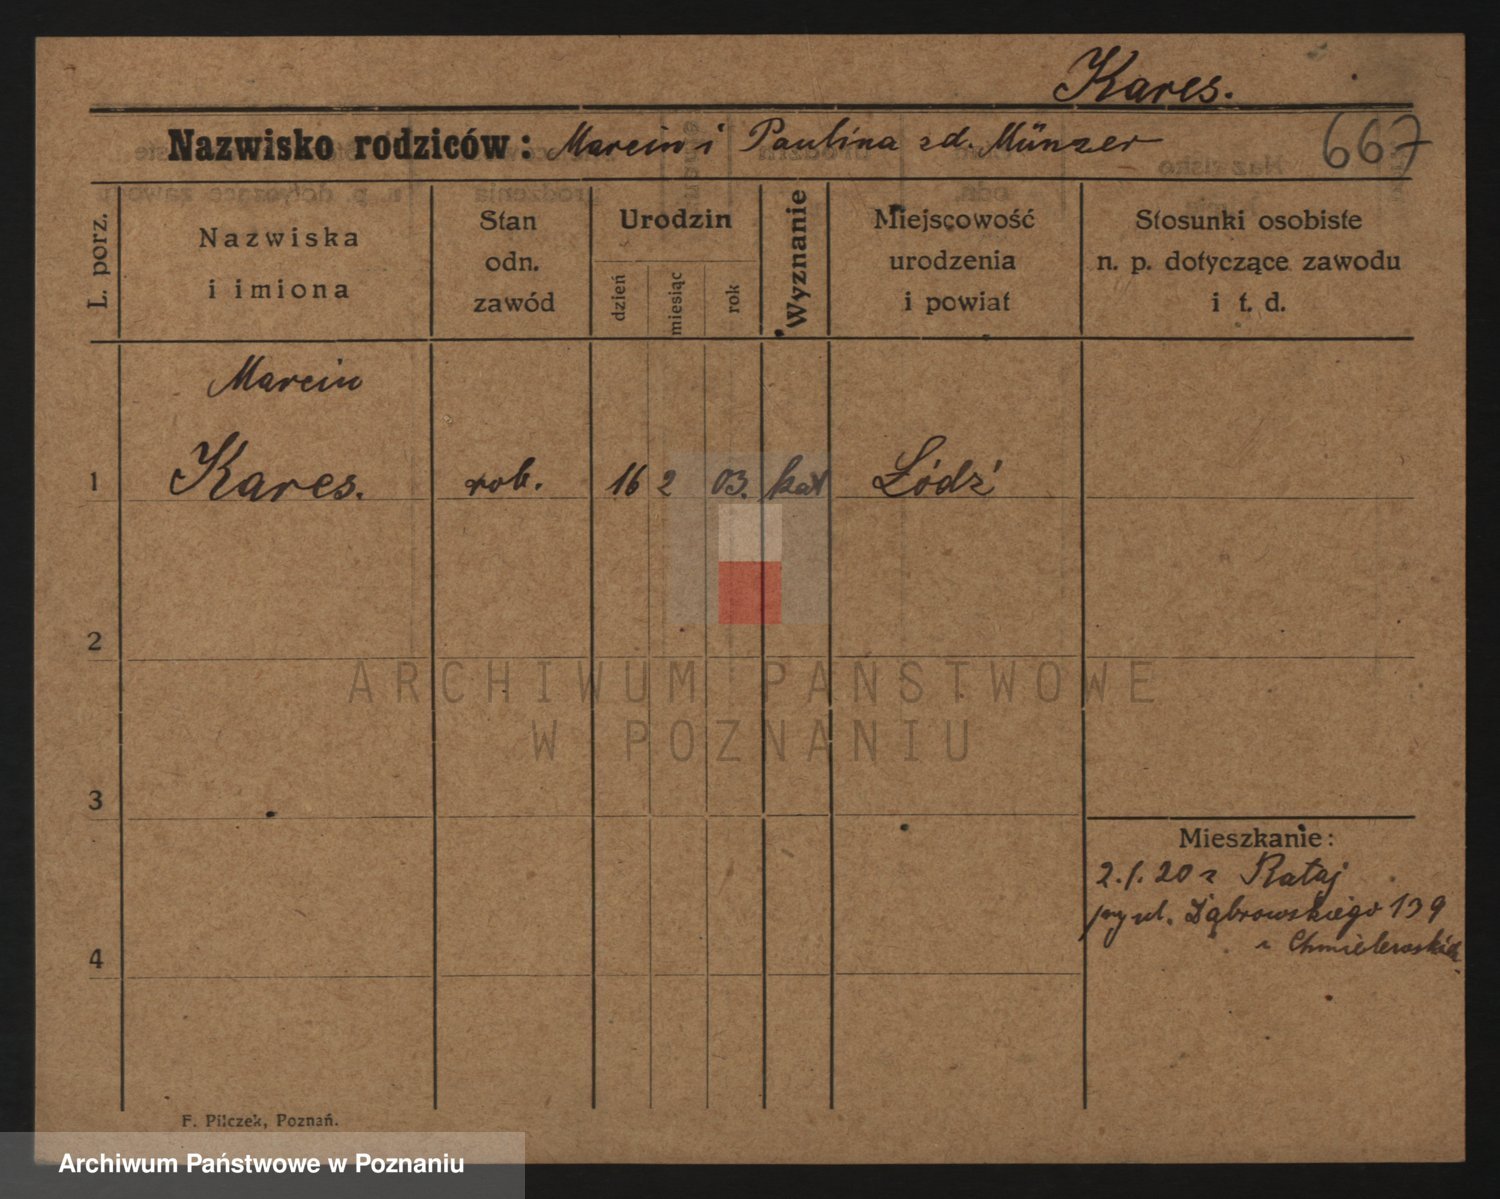 Kares.
Nazwisko rodziców: Marcin i Paulina zd. Münzer
667
L. porz.
Nazwiska
i imiona
Stan
odn.
zawód
Urodzin
dzień
miesiąc
rok
Wyznanie
Miejscowość
urodzenia
i powiat
Stosunki osobiste
n. p. dotyczące zawodu
i t. d.
Marcin
1 Kares. rob. 16 2 03. kat Łódź
2
ARCHIWUM PAŃSTWOWE
W POZNANIU
3
Mieszkanie:
2.1.20 z Rataj
przy ul. Dąbrowskiego 139
4
F. Pilczek, Poznań.
Archiwum Państwowe w Poznaniu